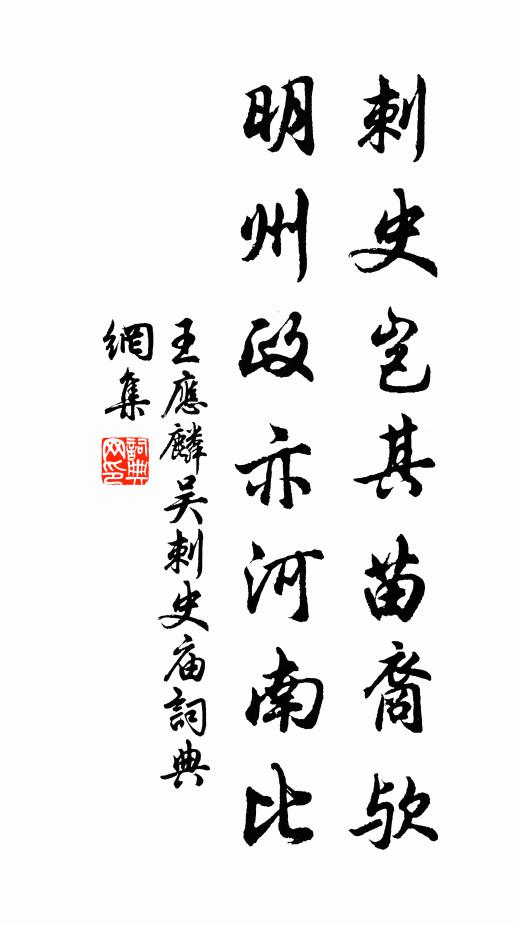 刺史岂其苗裔欤
明州政亦河南比
王應麟吴刺史庙詞典
網集
詞典网印